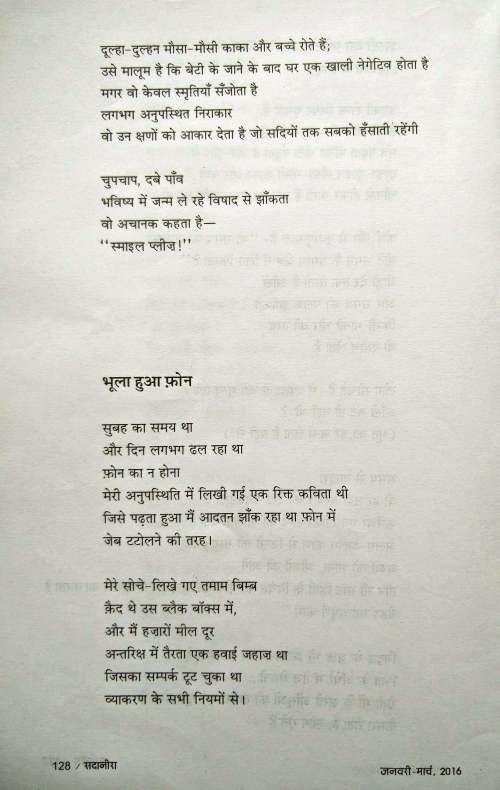 दूल्हा-दुल्हन मौसा-मौसी काका और बच्चे रोते हैं;
उसे मालूम है कि बेटी के जाने के बाद घर एक खाली नेगेटिव होता है
मगर वो केवल स्मृतियाँ सँजोता है
लगभग अनुपस्थित निराकार
वो उन क्षणों को आकार देता है जो सदियों तक सबको हँसाती रहेंगी
चुपचाप, दबे पाँव
भविष्य में जन्म ले रहे विषाद से झाँकता
वो अचानक कहता है—
‘‘स्माइल प्लीज़!’’
भूला हुआ फ़ोन
सुबह का समय था
और दिन लगभग ढल रहा था
फ़ोन का न होना
मेरी अनुपस्थिति में लिखी गई एक रिक्त कविता थी
जिसे पढ़ता हुआ मैं आदतन झाँक रहा था फ़ोन में
जेब टटोलने की तरह।
मेरे सोचे-लिखे गए तमाम बिम्ब
क़ैद थे उस ब्लैक बॉक्स में,
और मैं हज़ारों मील दूर
अन्तरिक्ष में तैरता एक हवाई जहाज़ था
जिसका सम्पर्क टूट चुका था
व्याकरण के सभी नियमों से।
128 / सदानीरा
जनवरी-मार्च, 2016